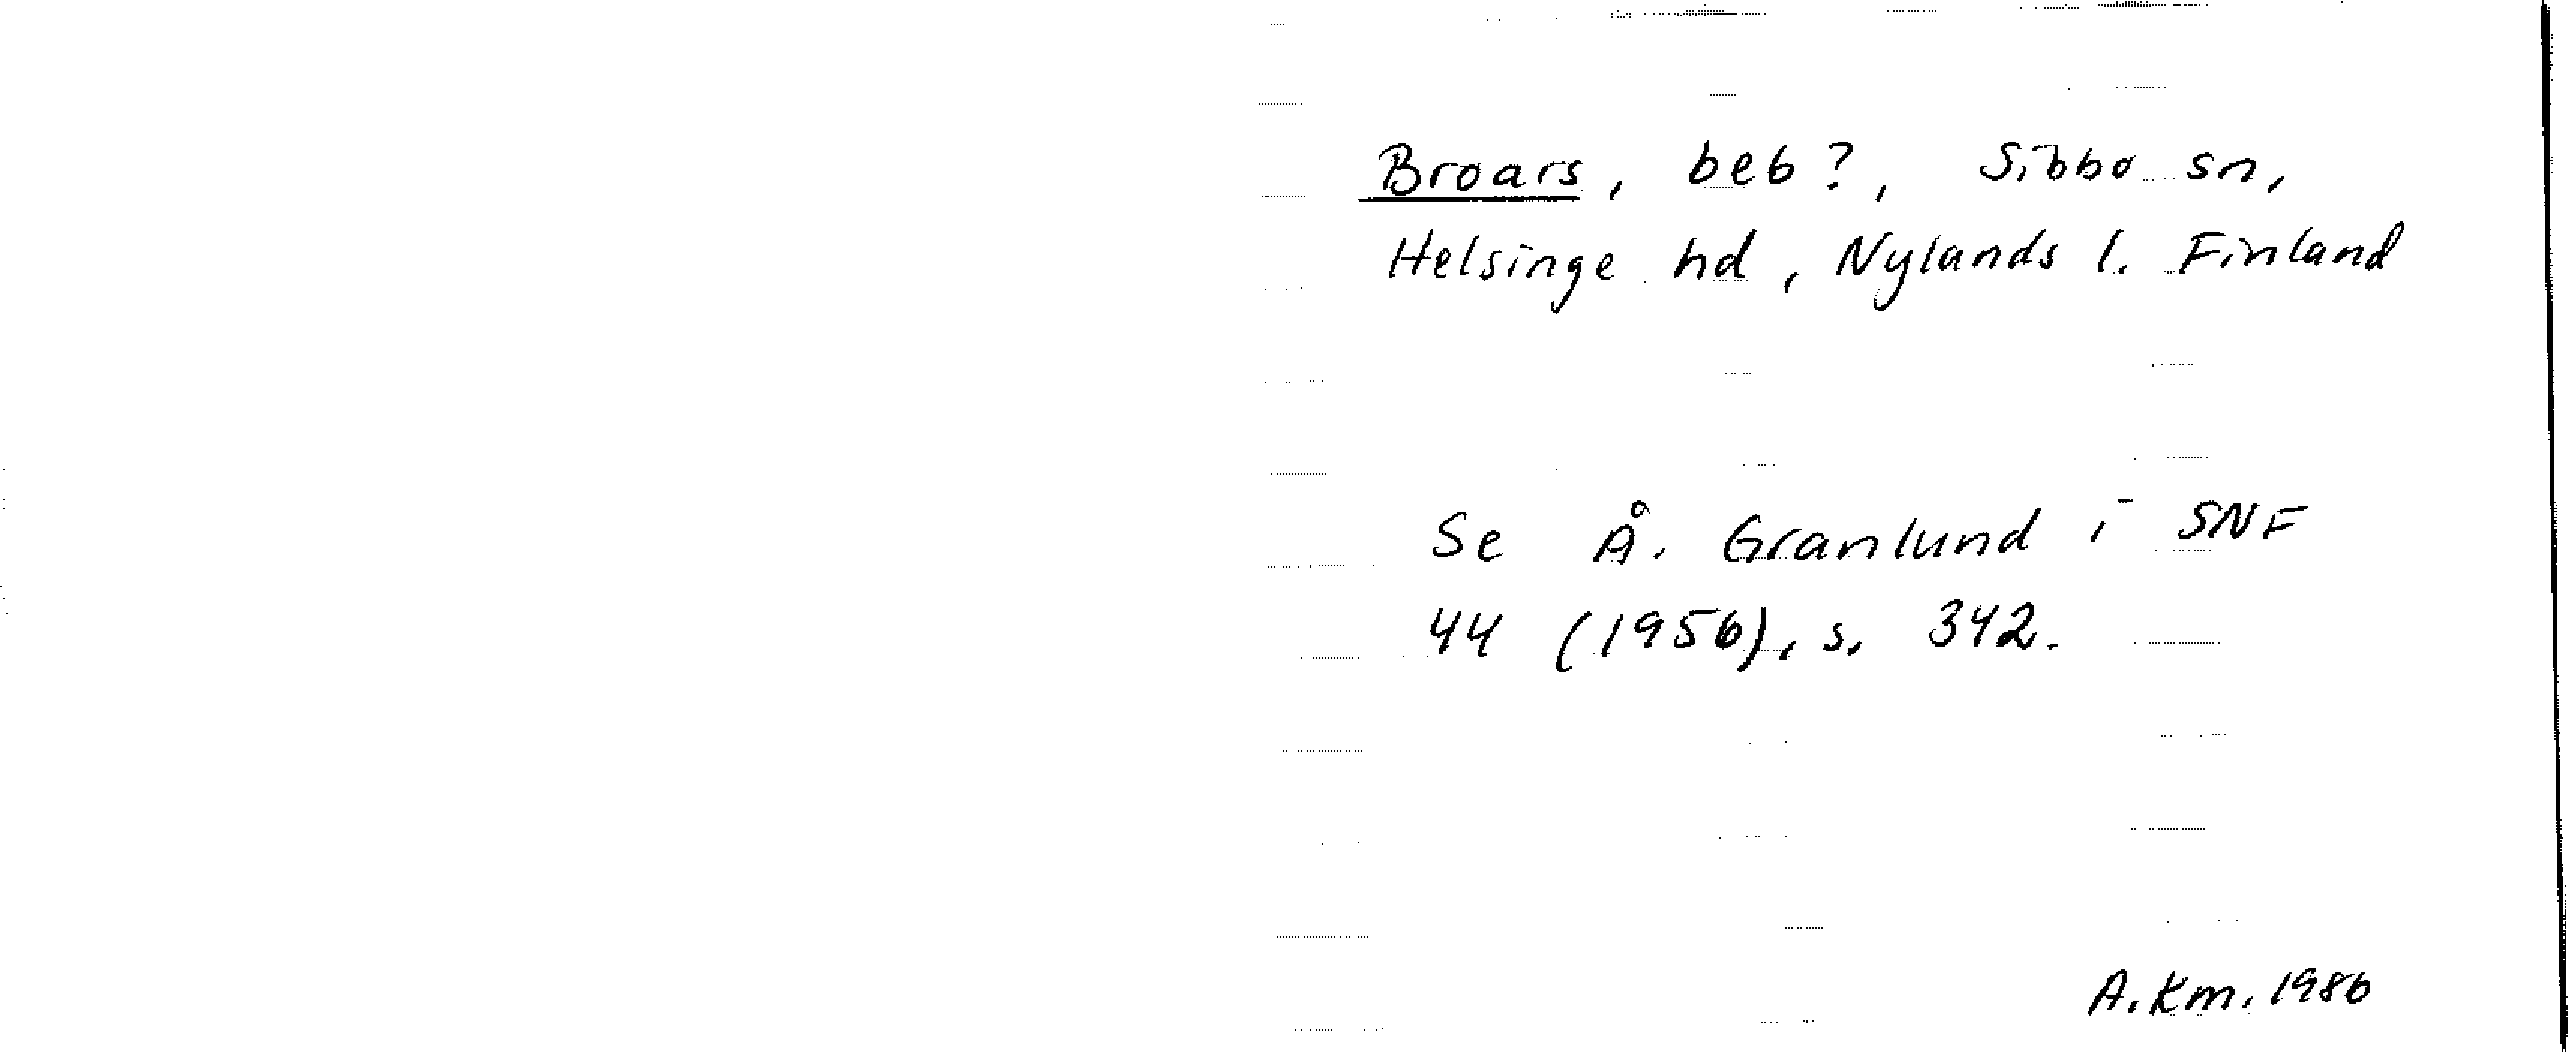 Broars, beb?, Sibbo sn,
Helsinge hd, Nylands l. Finland
Se Å. Granlund i SNF
44 (1956), s. 342.
A. Km. 1986